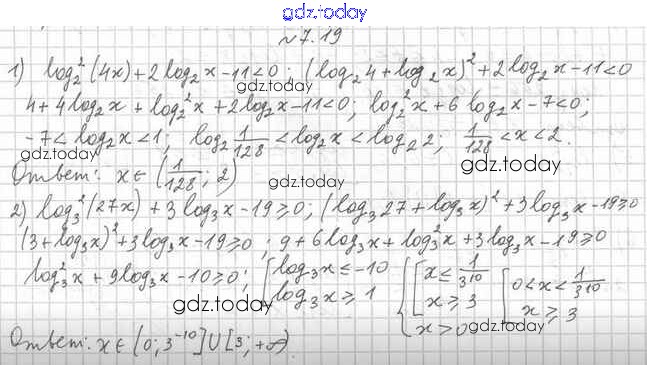 gdz.today
№7.19
1) log₂²(4x)+2log₂x-11<0; (log₂4+log₂x)²+2log₂x-11<0
gdz.today
4+4log₂x+log₂²x+2log₂x-11<0; log₂²x+6log₂x-7<0;
-7<log₂x<1; log₂ 1/128 <log₂x<log₂2; 1/128 <x<2.
gdz.today gdz.today
Ответ: x∈(1/128; 2)
gdz.today
2) log₃²(27x)+3log₃x-19≥0; (log₃27+log₃x)²+3log₃x-19≥0
(3+log₃x)²+3log₃x-19≥0; 9+6log₃x+log₃²x+3log₃x-19≥0
gdz.today gdz.today
log₃²x+9log₃x-10≥0; [log₃x≤-10 log₃x≥1 {[x≤1/3¹⁰ x≥3 x>0 [0<x<1/3¹⁰ x≥3
gdz.today gdz.today
Ответ: x∈(0;3⁻¹⁰]∪[3;+∞)
gdz.today